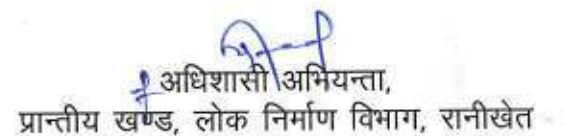 अधिशासी अभियन्ता,
प्रान्तीय खण्ड, लोक निर्माण विभाग, रानीखेत